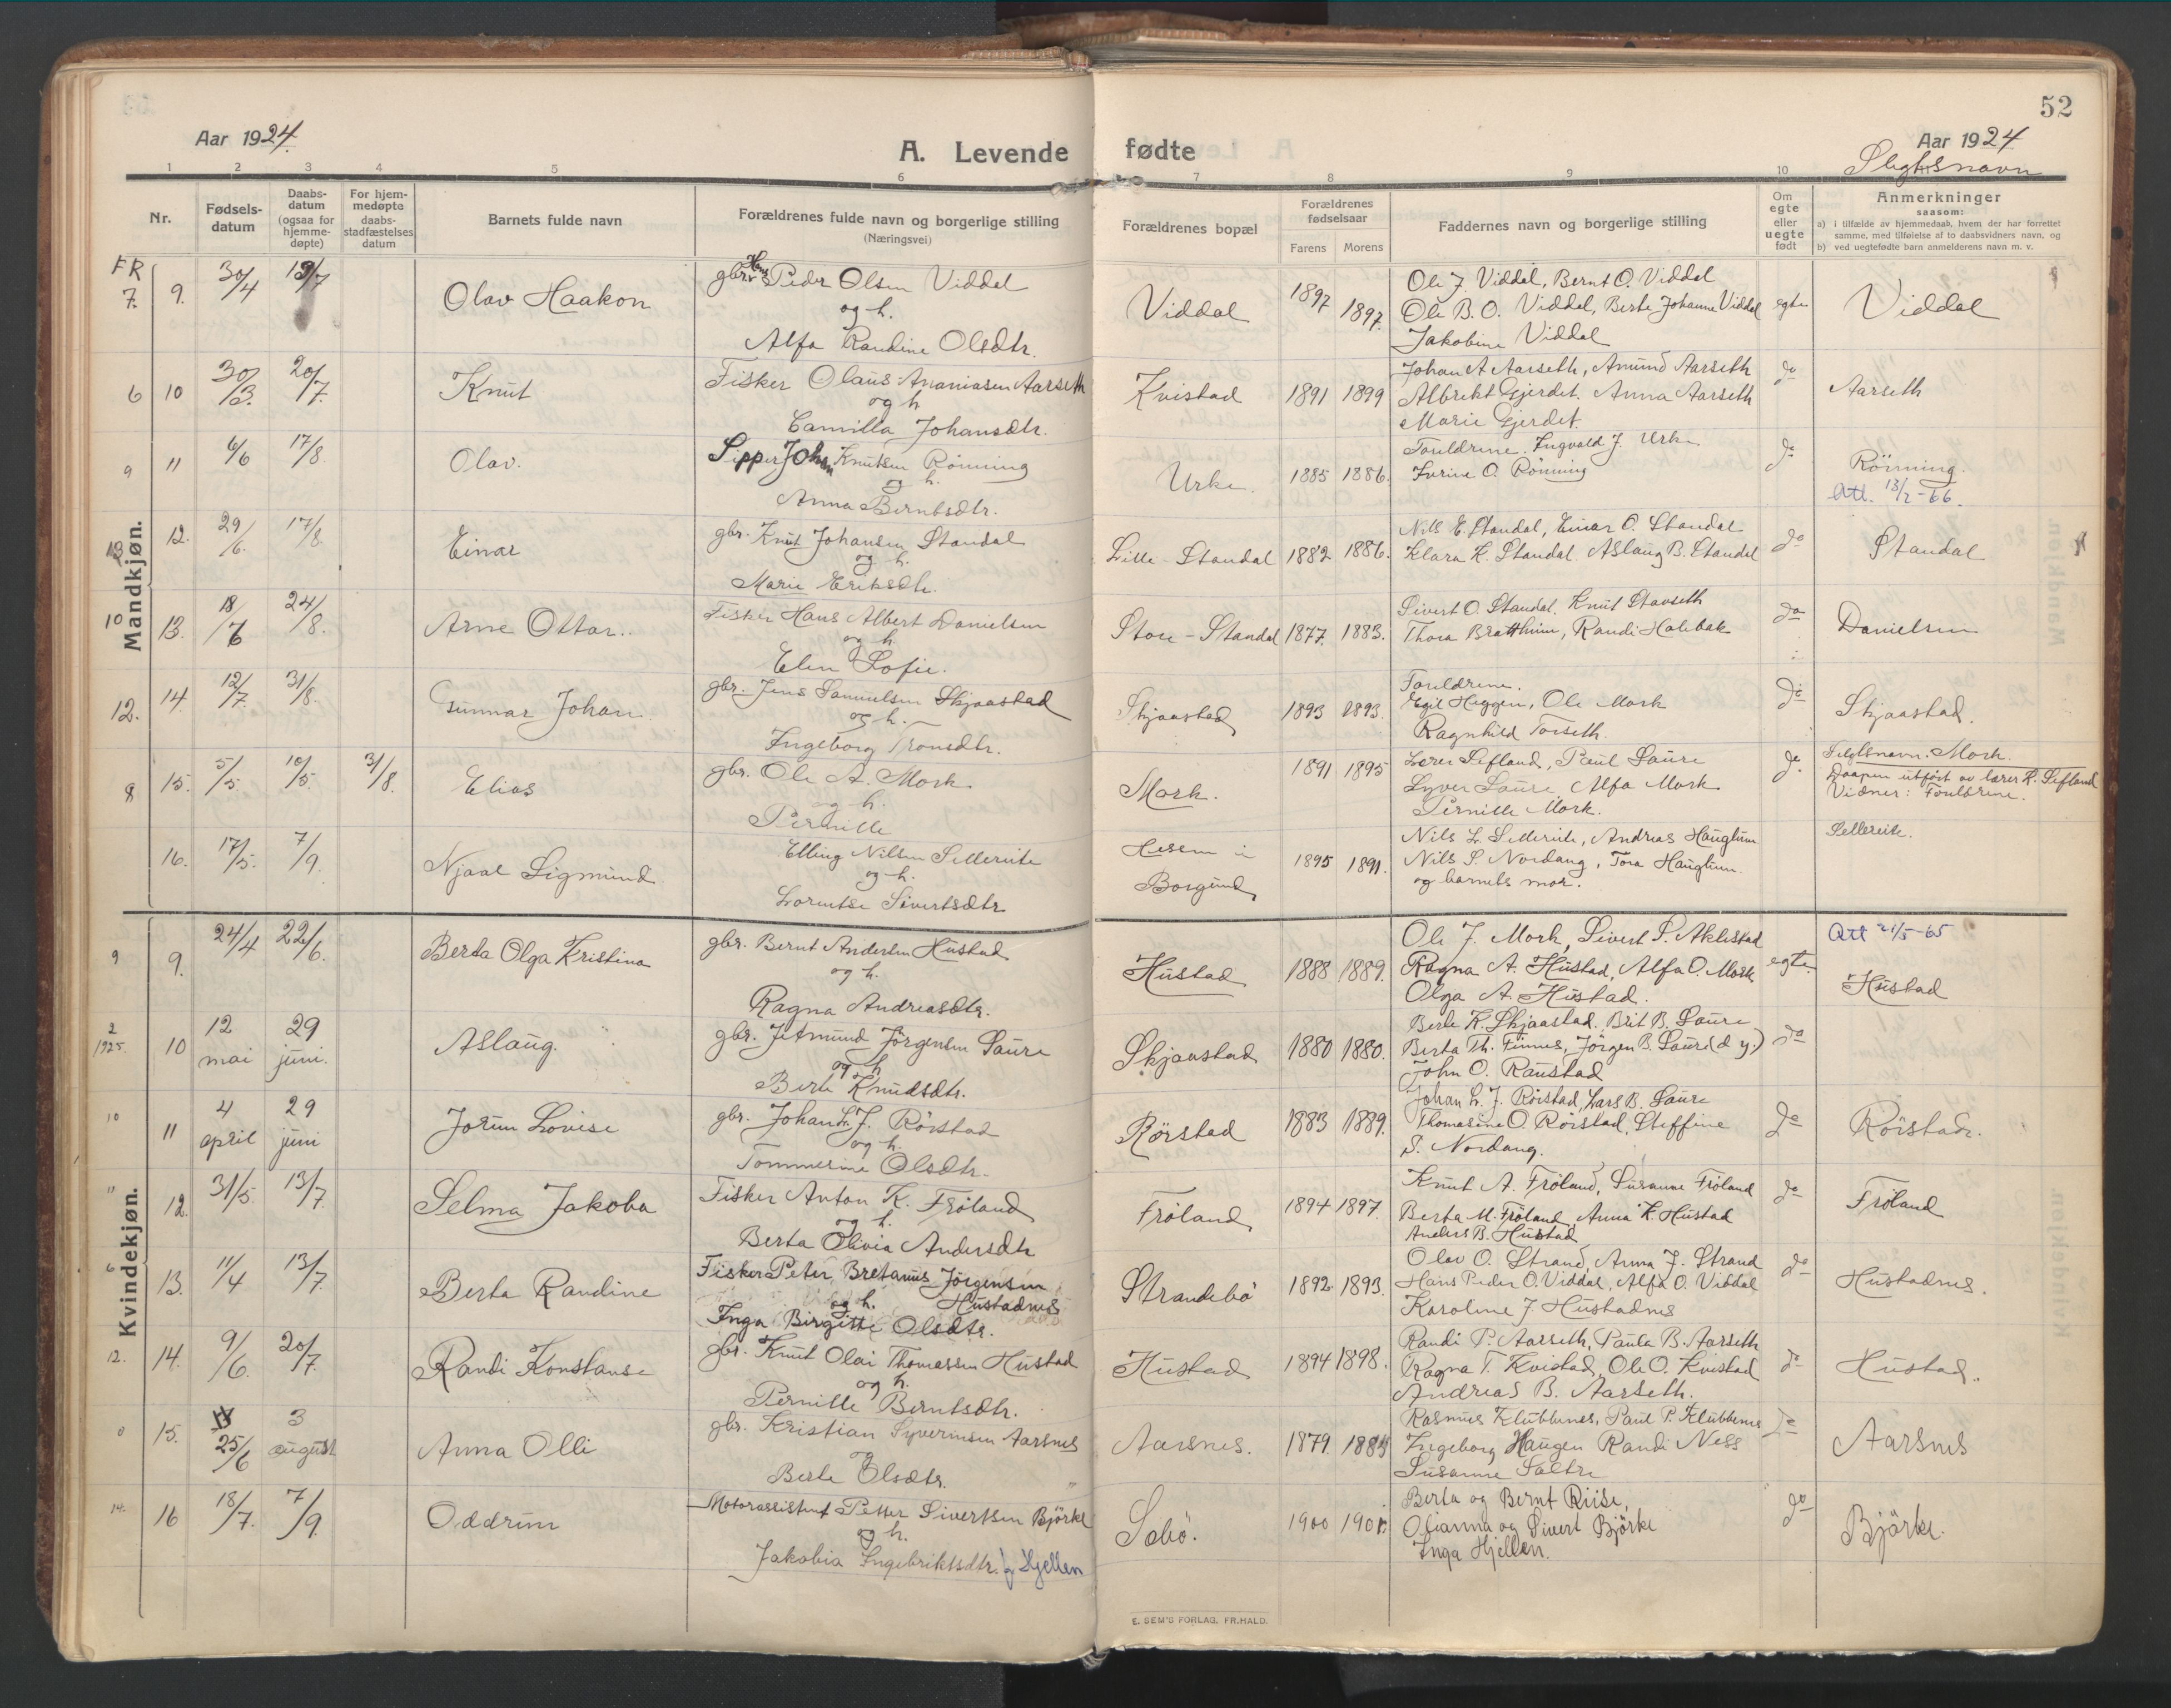 52
Aar 1924.
A. Levende fødte
Aar 1924
Slegtsnavn
1 2 3 4 5 6 7 8 9 10 11
Nr.
Fødsels-
datum
Daabs-
datum
(ogsaa for
hjemme-
døpte)
For hjem-
medøpte
daabs-
stadfæstelses
datum
Barnets fulde navn
Forældrenes fulde navn og borgerlige stilling
(Næringsvei)
Forældrenes bopæl
Forældrenes
fødselsaar
Farens
Morens
Faddernes navn og borgerlige stilling
Om
egte
eller
uegte
født
Anmerkninger
saasom:
a) i tilfælde av hjemmedaab, hvem der har forrettet
samme, med tilføielse af to daabsvidners navn, og
b) ved uegtefødte barn anmelderens navn m. v.
Mandkjøn.
FR
7. 9. 30/4 13/7 Olav Haakon
gbr. Hans Peder Olsen Viddal
og h.
Alfa Randine Olsdtr.
Viddal 1897 1897.
Ole J. Viddal, Bernt O. Viddal
Ole B. O. Viddal, Berte Johanne Viddal
Jakobine Viddal
egte Viddal
6 10 30/3. 20/7. Knut
Fisker Olaus Ananiasen Aarseth
og h
Camilla Johansdtr.
Kvistad 1891 1899
Johan A Aarseth, Amund Aarseth
Albrekt Gjerdet. Anna Aarseth
Marie Gjerdet.
do Aarseth
9 11 6/6 17/8 Olav.
Sipper Johan Knutsen Rönning
og h.
Anna Berntsdtr.
Urke. 1885 1886.
Foreldrene. Ingvald J. Urke
O. Rönning
do Rönning.
Att. 13/2-66.
13 12. 29/6. 17/8 Einar
gbr. Knut Johansen Standal
og h.
Marie Eriksdtr.
Lille-Standal 1882 1886.
Nils E. Standal, Einar O. Standal
Klara K. Standal. Aslaug B. Standal
do Standal
10 13. 18/6 24/8. Arne Ottar..
Fisker Hans Albert Danielsen
og h
Elen Sofie.
Store-Standal 1877. 1883.
Sivert O. Standal. Knut Stavseth
Thora Bratthim, Randi Holebak
do Danielsen
12. 14. 12/7. 31/8. Gunnar Johan
gbr. Jens Samuelsen Skjaastad
og h.
Ingeborg Tronsdtr.
Skjaastad 1893 1893.
Foreldrene.
Egil Heggen, Ole Mork
Ragnhild Torseth.
do Skjaastad.
8 15. 5/5. 10/5. 31/8. Elias
gbr. Ole A. Mork
og h.
Pernille
Mork. 1891 1895
Lærer Sefland, Paul Saure
Syver Saure, Alfa Mork
Pernille Mork.
do Selgtsnavn. Mork.
Daapen utfört av lærer K. Sefland
Vidner: Foreldrene.
16. 17/5. 7/9. Njaal Sigmund
Elling Nilsen Sellereite
og h.
Lorentse Sivertsdtr
Hesen i
Borgund
1895 1891.
Nils L. Sellereite, Andreas Hauglum
Nils S. Nordang, Tora Hauglum.
og barnets mor.
Sellereite.
Kvindekjøn.
9 9. 24/4 22/6. Berta Olga Kristina
gbr. Bernt Andersen Hustad
og h.
Ragna Andreasdtr.
Hustad 1888 1889.
Ole J. Mork, Sivert S. Aklestad
Ragna A. Hustad, Alfa O. Mork
Olga A. Hustad.
egte Att 21/5-65
Hustad
2
1925. 10 12
mai 29
juni. Aslaug.
gbr. Jetmund Jörgensen Saure
og h
Berte Knudsdtr.
Skjaastad 1880 1880.
Berte K. Skjaastad. Brit B. Saure
Berta Th. Finnes, Jörgen B. Saure (d y.)
John O. Raustad
do
10 11 4
april 29
juni Jorun Lovise
gbr. Johan L. J. Rörstad
og h.
Tommerine Olsdtr.
Rörstad 1883 1889.
Johan L. J. Rörstad, Lars B. Saure
Thomasine O. Rörstad, Steffine
S. Nordang.
do Rörstad.
" 12. 31/5. 13/7 Selma Jakoba
Fisker Anton K. Fröland
og h.
Berta Olivia Andersdtr
Fröland 1894 1897.
Knut A. Fröland, Susanne Fröland
Berta M. Fröland, Anna K. Hustad
Anders B. Hustad
do Fröland
6 13. 11/4 13/7. Berta Randine
Fisker Peter Bretanus Jörgensen
og h. Hustadnes
Inga Birgitte Olsdtr.
Strandebö 1892 1893.
Olav O. Strand, Anna J. Strand
Hans Peder O. Viddal, Alfa O. Viddal
Karoline J. Hustadnes
do Hustadnes.
12. 14. 9/6. 20/7. Randi Konstanse
gbr. Knut Olai Thomassen Hustad
og h.
Pernille Berntsdtr.
Hustad 1894 1898.
Randi P. Aarseth, Paula B. Aarseth
Ragna T. Kvistad, Ole O. Kvistad
Andreas B. Aarseth.
do Hustad.
15. 25/6 3
august Anna Olli
gbr. Kristian Syverinsen Aarsnes
og
Berte Olsdtr.
Aarsnes. 1879. 1884
Rasmus Klubbenes, Paul P. Klubbenes
Ingeborg Haugen Randi Ness
Susanne Sætre
do Aarsnes
14. 16 18/7. 7/9. Oddrun
Motorassistent Petter Sivertsen Björke
og h.
Jakobia Ingebriktsdtr. f. Hjellen
Sæbö. 1900 1901.
Berta og Bernt Riise,
Olianna og Sivert Björke
Inga Hjellen.
do Björke.
E. SEM'S FORLAG, FR.HALD.